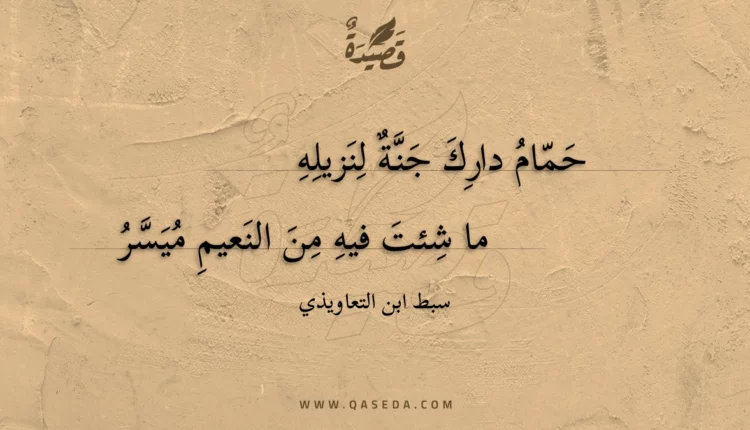 قَصِيْدَةٌ
حَمّامُ دارِكَ جَنَّةٌ لِنَزيلِهِ
ما شِئتَ فيهِ مِنَ النَعيمِ مُيَسَّرُ
سبط ابن التعاويذي
WWW.QASEDA.COM